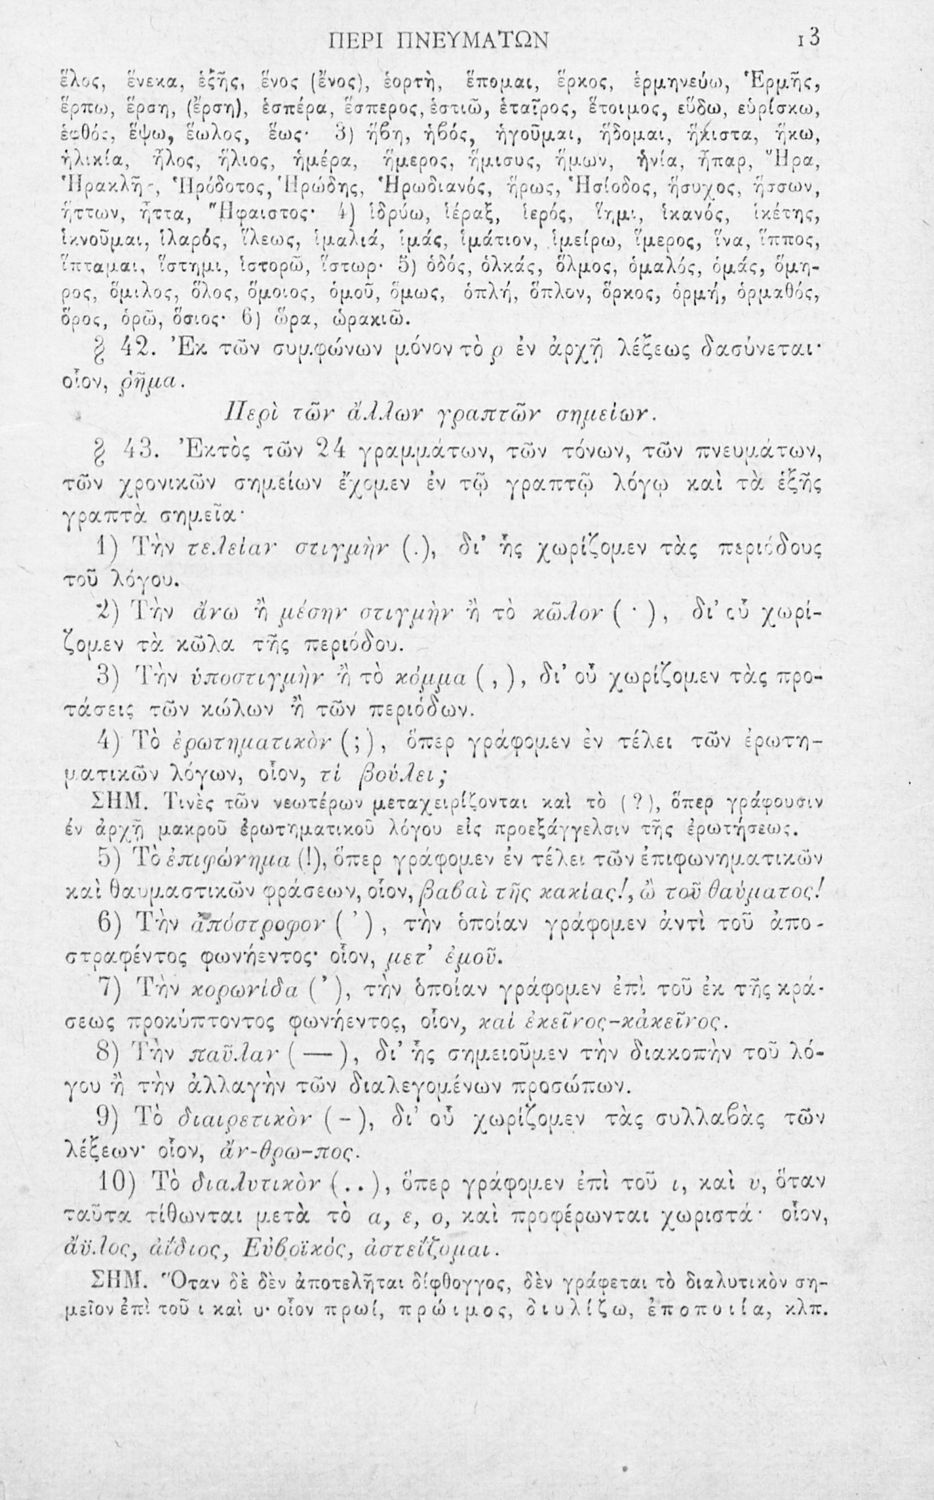 ΠΕΡΙ ΠΝΕΥΜΑΤΩΝ 13
ἕλος, ἕνεκα, ἑξῆς, ἕνος (ἔνος), ἑορτὴ, ἕπομαι, ἕρκος, ἑρμηνεύω, Ἑρμῆς,
ἕρπω, ἕρση, (ἔρση), ἑσπέρα, ἕσπερος, ἑστιῶ, ἑταῖρος, ἕτοιμος, εὕδω, εὑρίσκω,
ἑφθός, ἕψω, ἕωλος, ἕως· 3) ἥβη, ἡβός, ἡγοῦμαι, ἥδομαι, ἥκιστα, ἥκω,
ἡλικία, ἧλος, ἥλιος, ἡμέρα, ἥμερος, ἥμισυς, ἥμων, ἡνία, ἧπαρ, Ἥρα,
Ἡρακλῆς, Ἡρόδοτος, Ἡρώδης, Ἡρωδιανός, ἥρως, Ἡσίοδος, ἥσυχος, ἥσσων,
ἥττων, ἧττα, Ἥφαιστος· 4) ἱδρύω, ἱέραξ, ἱερός, ἵημι, ἱκανός, ἱκέτης,
ἱκνοῦμαι, ἱλαρός, ἵλεως, ἱμαλιά, ἱμάς, ἱμάτιον, ἱμείρω, ἵμερος, ἵνα, ἵππος,
ἵπταμαι, ἵστημι, ἱστορῶ, ἵστωρ· 5) ὁδός, ὁλκάς, ὅλμος, ὁμαλός, ὁμάς, ὅμη-
ρος, ὅμιλος, ὅλος, ὅμοιος, ὁμοῦ, ὅμως, ὁπλή, ὅπλον, ὅρκος, ὁρμή, ὁρμαθός,
ὅρος, ὁρῶ, ὅσιος· 6) ὥρα, ὡρακιῶ.
§ 42. Ἐκ τῶν συμφώνων μόνον τὸ ρ ἐν ἀρχῇ λέξεως δασύνεται·
οἷον, ῥῆμα.
Περὶ τῶν ἄλλων γραπτῶν σημείων.
§ 43. Ἐκτὸς τῶν 24 γραμμάτων, τῶν τόνων, τῶν πνευμάτων,
τῶν χρονικῶν σημείων ἔχομεν ἐν τῷ γραπτῷ λόγῳ καὶ τὰ ἑξῆς
γραπτὰ σημεῖα·
1) Τὴν τελείαν στιγμὴν (.), δι᾽ ἧς χωρίζομεν τὰς περιόδους
τοῦ λόγου.
2) Τὴν ἄνω ἢ μέσην στιγμὴν ἢ τὸ κῶλον ( · ), δι᾽ οὗ χωρί-
ζομεν τὰ κῶλα τῆς περιόδου.
3) Τὴν ὑποστιγμὴν ἢ τὸ κόμμα ( , ), δι᾽ οὗ χωρίζομεν τὰς προ-
τάσεις τῶν κώλων ἢ τῶν περιόδων.
4) Τὸ ἐρωτηματικὸν ( ; ), ὅπερ γράφομεν ἐν τέλει τῶν ἐρωτη-
ματικῶν λόγων, οἷον, τί βούλει;
ΣΗΜ. Τινὲς τῶν νεωτέρων μεταχειρίζονται καὶ τὸ (?), ὅπερ γράφουσιν
ἐν ἀρχῇ μακροῦ ἐρωτηματικοῦ λόγου εἰς προεξάγγελσιν τῆς ἐρωτήσεως.
5) Τὸ ἐπιφώνημα (!), ὅπερ γράφομεν ἐν τέλει τῶν ἐπιφωνηματικῶν
καὶ θαυμαστικῶν φράσεων, οἷον, βαβαὶ τῆς κακίας!, ὢ τοῦ θαύματος!
6) Τὴν ἀπόστροφον ( ’ ), τὴν ὁποίαν γράφομεν ἀντὶ τοῦ ἀπο-
στραφέντος φωνήεντος· οἷον, μετ᾽ ἐμοῦ.
7) Τὴν κορωνίδα ( ’ ), τὴν ὁποίαν γράφομεν ἐπὶ τοῦ ἐκ τῆς κρά-
σεως προκύπτοντος φωνήεντος, οἷον, καὶ ἐκεῖνος-κἀκεῖνος.
8) Τὴν παῦλαν ( — ), δι᾽ ἧς σημειοῦμεν τὴν διακοπὴν τοῦ λό-
γου ἢ τὴν ἀλλαγὴν τῶν διαλεγομένων προσώπων.
9) Τὸ διαιρετικὸν ( - ), δι᾽ οὗ χωρίζομεν τὰς συλλαβὰς τῶν
λέξεων· οἷον, ἄν-θρω-πος.
10) Τὸ διαλυτικὸν ( . . ), ὅπερ γράφομεν ἐπὶ τοῦ ι, καὶ υ, ὅταν
ταῦτα τίθωνται μετὰ τὸ α, ε, ο, καὶ προφέρωνται χωριστά· οἷον,
ἄϋλος, ἀΐδιος, Εὐβοϊκὸς, ἀστεΐζομαι.
ΣΗΜ. Ὅταν δὲ δὲν ἀποτελῆται δίφθογγος, δὲν γράφεται τὸ διαλυτικὸν ση-
μεῖον ἐπὶ τοῦ ι καὶ υ· οἷον πρωί, πρώιμος, διυλίζω, ἐποποιία, κλπ.